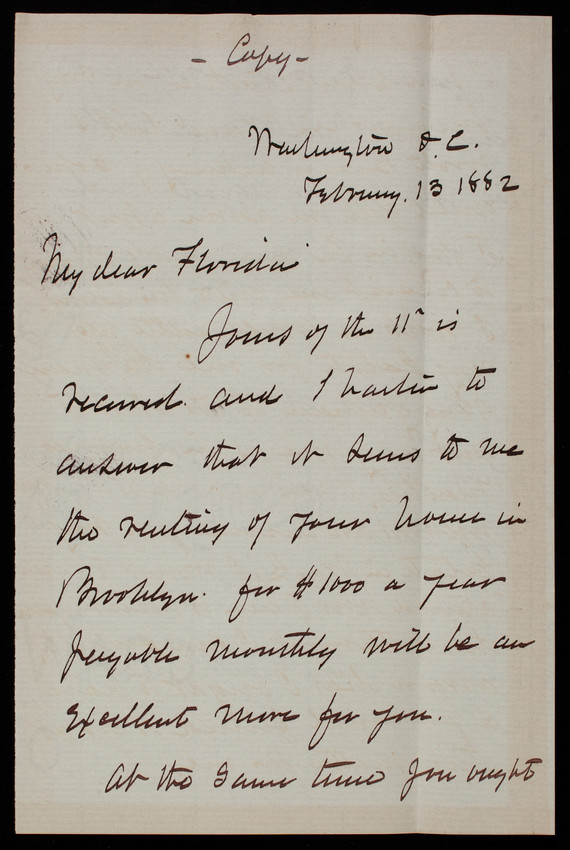 - Copy -
Washington D.C.
February. 13 1882
My dear Florida
Yours of the 11th is
received. and I hasten to
answer that it seems to me
the renting of your house in
Brooklyn. for $1000 a year
payable monthly will be an
Excellent move for you.
At the same time you ought